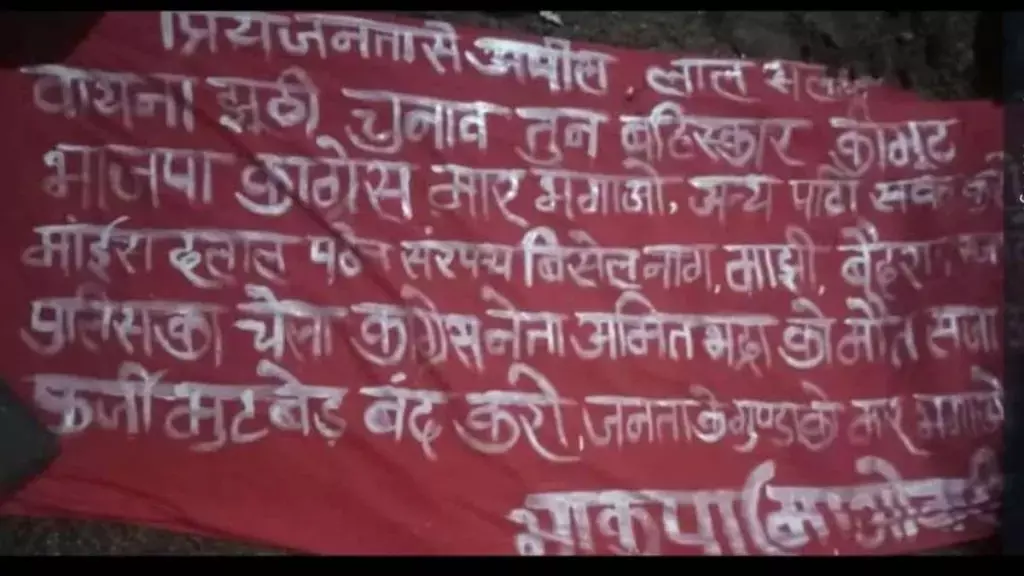 प्रिय जनता से अपील, लाल सलाम
वायना झूठी चुनाव तुन बहिस्कार कीमट
भाजपा कांग्रेस मार भगाओ, अन्य पार्टी
माईस दलाल सरपंच बिसेल नाग, माझी,
पुलिसका चेला कांग्रेस नेता अमित भद्रा को मौत सजा
फर्जी मुटबेड़ बंद करो, जनता के गुण्डा के मार भगाओ
भाकपा (माओवादी